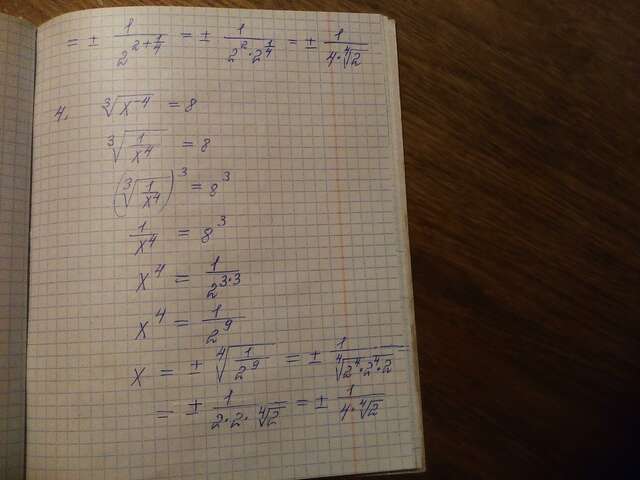 = ± 1/2^(2+1/4) = ± 1/(2²·2^(1/4)) = ± 1/(4·∜2)
4. ∛(x⁻⁴) = 8
∛(1/x⁴) = 8
(∛(1/x⁴))³ = 8³
1/x⁴ = 8³
x⁴ = 1/2^(3·3)
x⁴ = 1/2⁹
x = ± ∜(1/2⁹) = ± 1/∜(2⁴·2⁴·2) =
= ± 1/(2·2·∜2) = ± 1/(4·∜2)